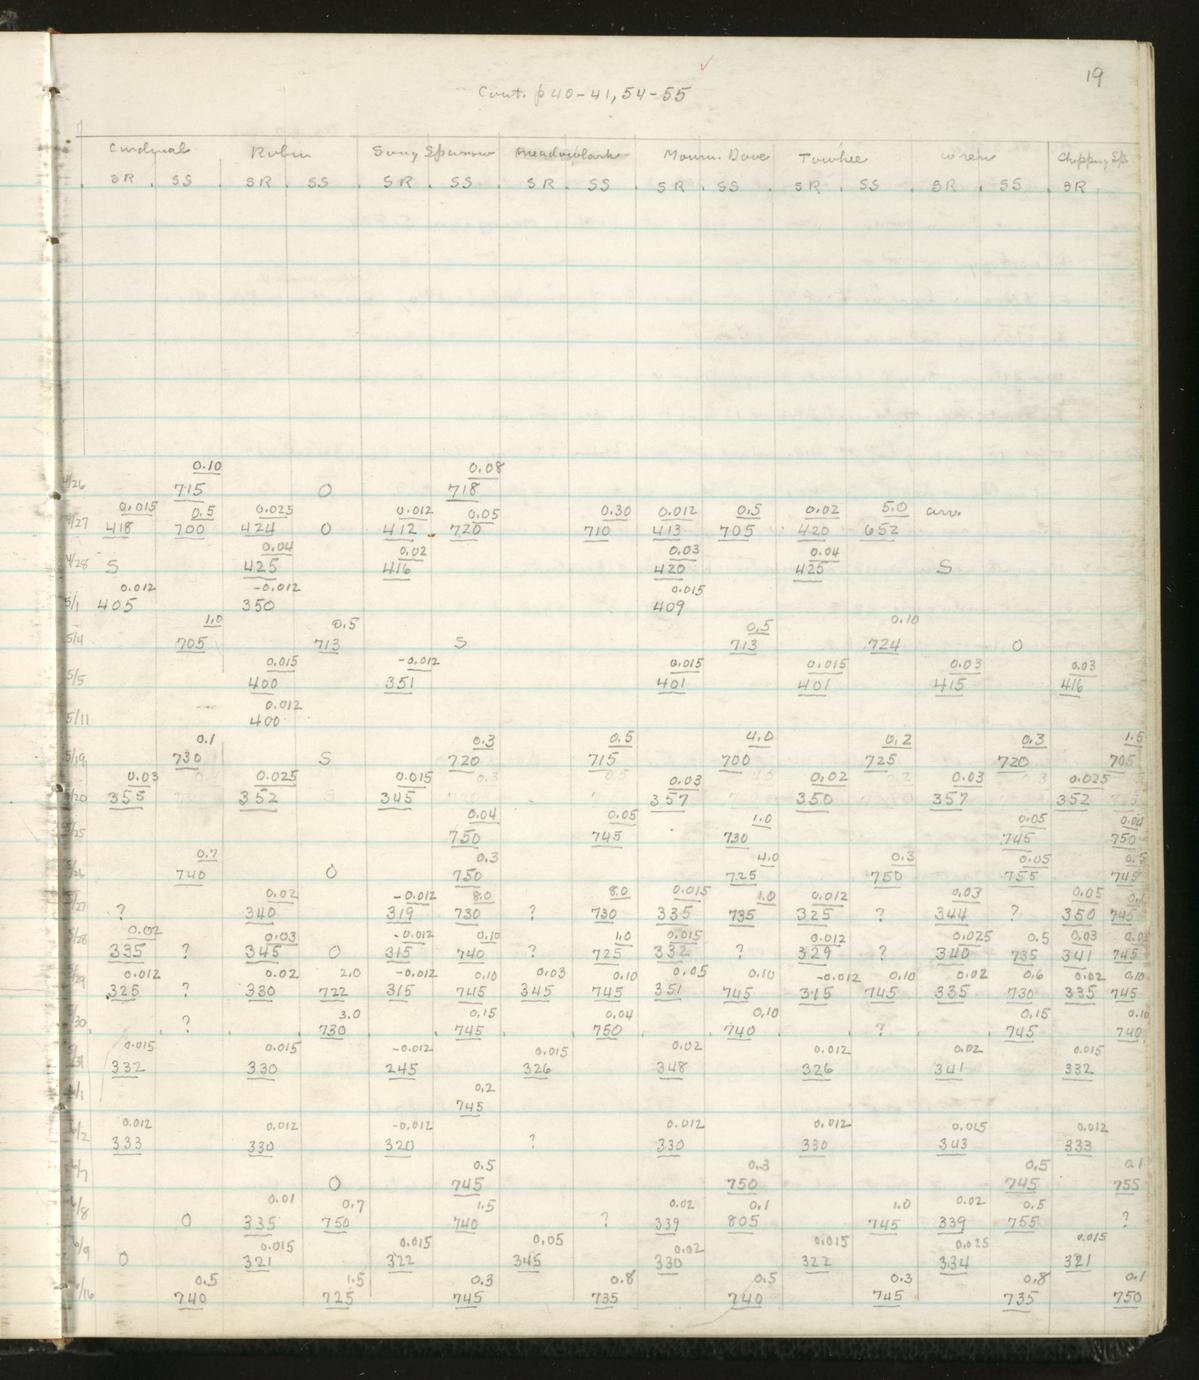 19
Cont. p 40-41, 54-55
Cardinal Robin Song Sparrow Meadowlark Mourn. Dove Towhee Wren Chipping Sp.
SR SS SR SS SR SS SR SS SR SS SR SS SR SS SR
0.10 0.08
4/26 715 O 718
0.015 0.5 0.025 0.012 0.05 0.30 0.012 0.5 0.02 5.0 arr.
4/27 418 700 424 O 412 720 710 413 705 420 652
0.04 0.02 0.03 0.04
4/28 S 425 416 420 425 S
0.012 -0.012 0.015
5/1 405 350 409
1.0 0.5 0.5 0.10
5/4 705 713 S 713 724 O
0.015 -0.012 0.015 0.015 0.03 0.03
5/5 400 351 401 401 415 416
0.012
5/11 400
0.1 0.3 0.5 4.0 0.2 0.3 1.5
5/19 730 S 720 715 700 725 720 705
0.03 0.025 0.015 0.03 0.02 0.03 0.025
5/20 355 352 345 357 350 357 352
0.04 0.05 1.0 0.05 0.04
5/25 750 745 730 745 750
0.7 0.3 4.0 0.3 0.05 0.5
5/26 740 O 750 725 750 755 745
0.02 -0.012 8.0 8.0 0.015 1.0 0.012 0.03 0.05
5/27 ? 340 319 730 ? 730 335 735 325 ? 344 ? 350 745
0.02 0.03 -0.012 0.10 1.0 0.015 0.012 0.025 0.5 0.03
5/28 335 ? 345 O 315 740 ? 725 332 ? 329 ? 340 735 341 745
0.012 0.02 2.0 -0.012 0.10 0.03 0.10 0.05 0.10 -0.012 0.10 0.02 0.6 0.02 0.10
5/29 325 ? 330 722 315 745 345 745 351 745 315 745 335 730 335 745
3.0 0.15 0.04 0.10 0.15 0.10
5/30 ? 730 745 750 740 ? 745 740
0.015 0.015 -0.012 0.015 0.02 0.012 0.02 0.015
5/31 332 330 245 326 348 326 341 332
0.2
6/1 745
0.012 0.012 -0.012 0.012 0.012 0.015 0.012
6/2 333 330 320 ? 330 330 343 333
0.5 0.3 0.5 0.1
6/7 O 745 750 745 755
0.01 0.7 1.5 0.02 0.1 1.0 0.02 0.5
6/8 O 335 750 740 ? 339 805 745 339 755 ?
0.015 0.015 0.05 0.02 0.015 0.025 0.015
6/9 O 321 322 345 330 322 334 321
0.5 1.5 0.3 0.8 0.5 0.3 0.8 0.1
6/16 740 725 745 735 740 745 735 750